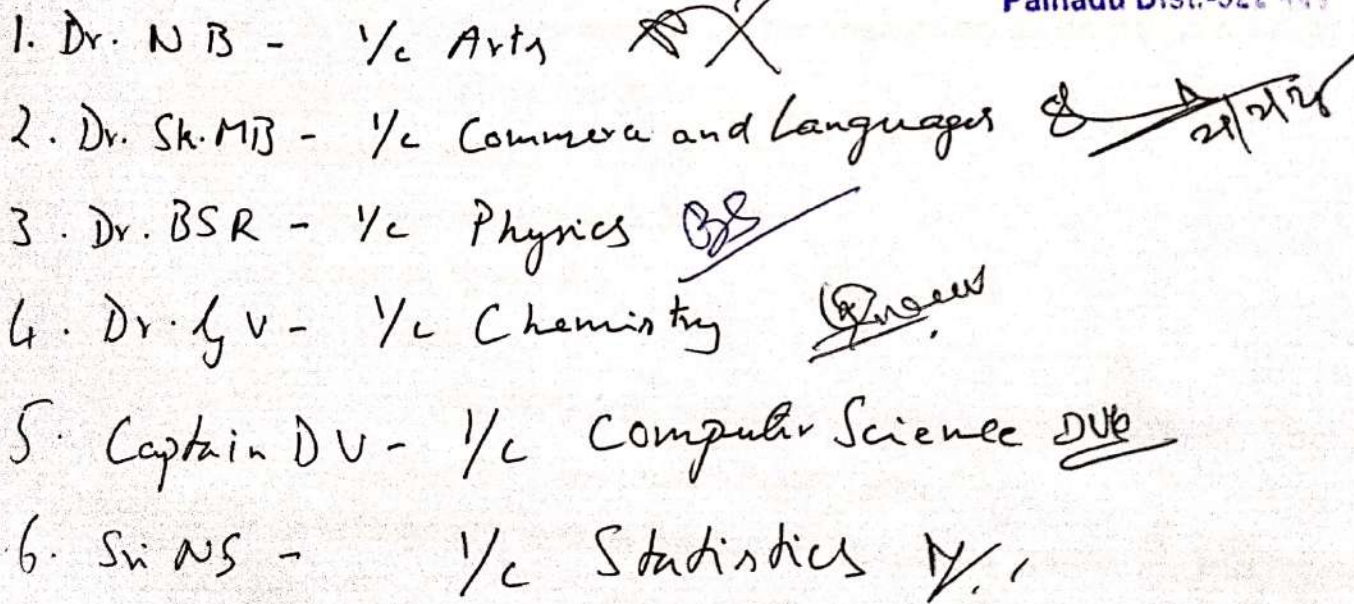 Palnadu Dist.-522
1. Dr. N B - I/c Arts
2. Dr. Sk. MB - I/c Commerce and Languages
3. Dr. BSR - I/c Physics BS
4. Dr. G V - I/c Chemistry
5. Captain DV - I/c Computer Science
6. Sri NS - I/c Statistics